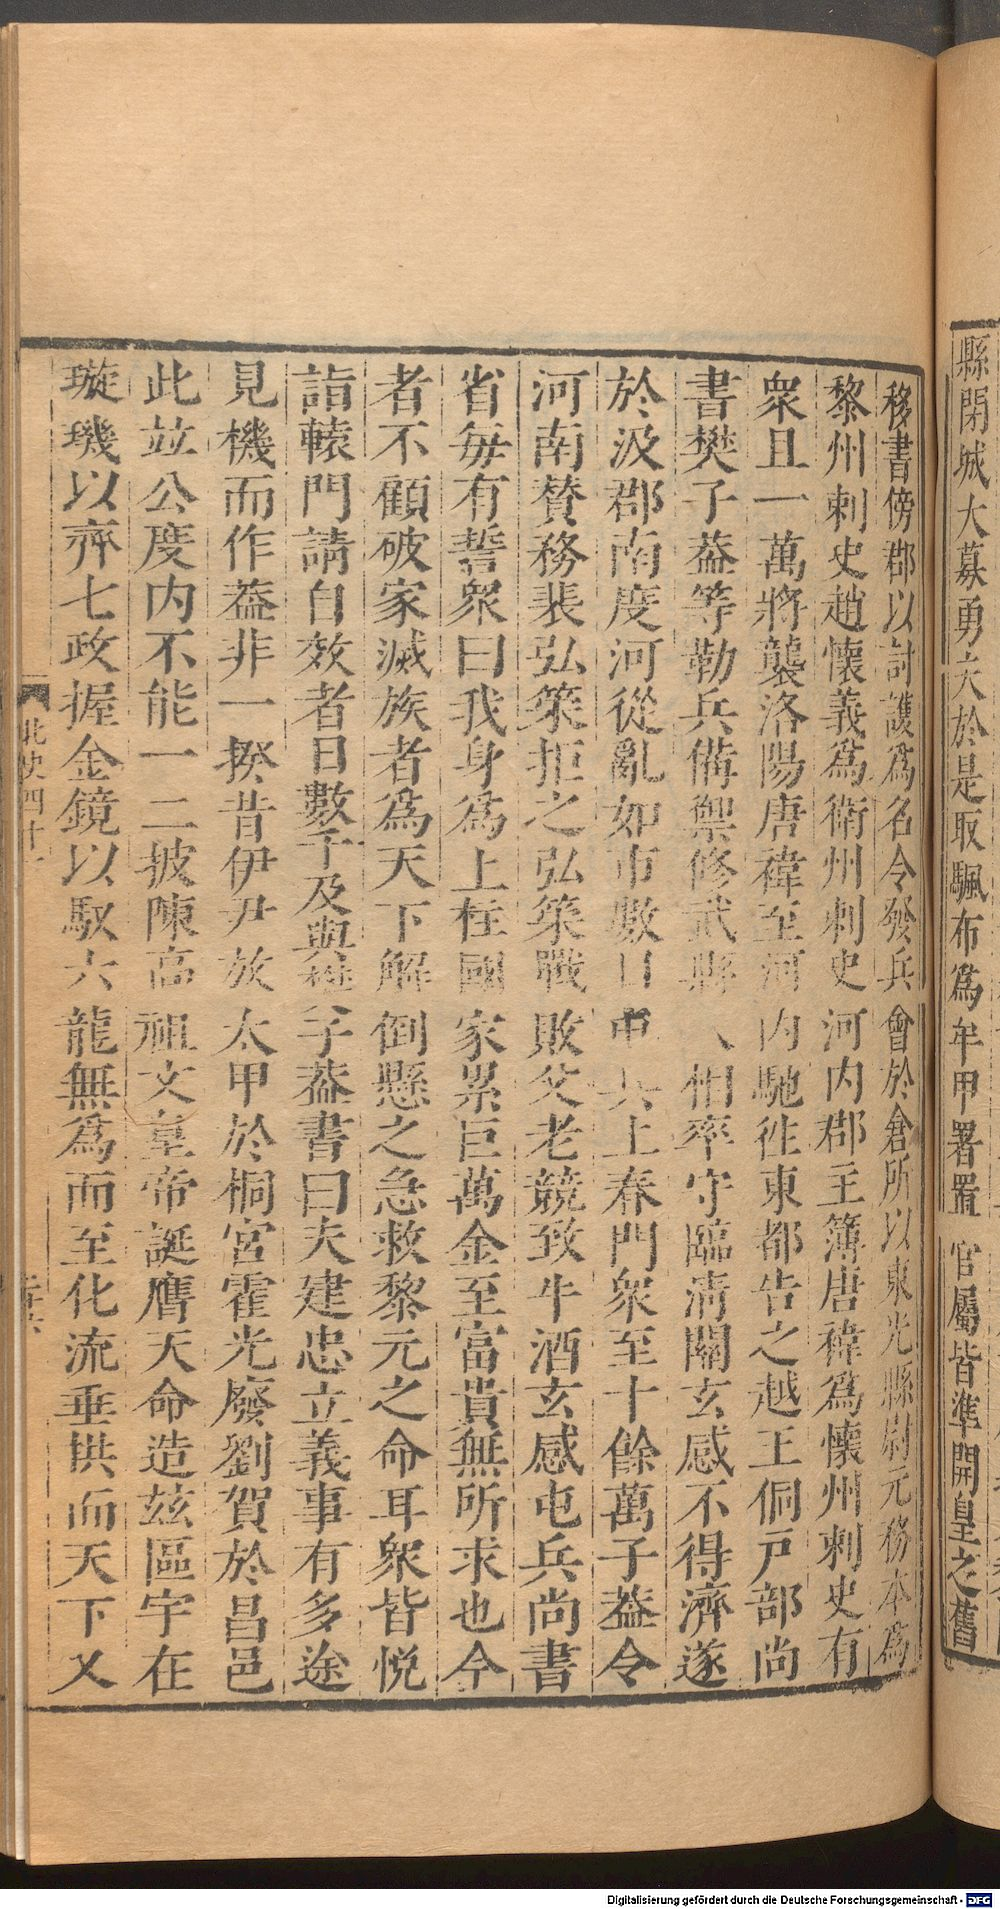 縣閉城大募勇夫於是取颿布爲牟甲署置官屬皆準開皇之舊
移書傍郡以討護爲名令發兵會於倉所以東光縣尉元務本爲
黎州刺史趙懷義爲衛州刺史河内郡主簿唐禕爲懷州刺史有
衆且一萬將襲洛陽唐禕至河内馳往東都告之越王侗戸部尚
書樊子葢等勒兵備禦修武縣人相率守臨淸關玄感不得濟遂
於汲郡南度河從亂如市數日屯兵上春門衆至十餘萬子葢令
河南賛務裴弘策拒之弘策戰敗父老競致牛酒玄感屯兵尚書
省每有誓衆曰我身爲上柱國家累巨萬金至富貴無所求也今
者不顧破家滅族者爲天下解倒懸之急救黎元之命耳衆皆悅
詣轅門請自效者日數千及與樊子葢書曰夫建忠立義事有多途
見機而作葢非一揆昔伊尹放太甲於桐宮霍光廢劉賀於昌邑
此並公度内不能一二披陳高祖文皇帝誕膺天命造兹區宇在
璇璣以齊七政握金鏡以馭六龍無爲而至化流垂拱而天下乂
北史四十一
Digitalisierung gefördert durch die Deutsche Forschungsgemeinschaft - DFG